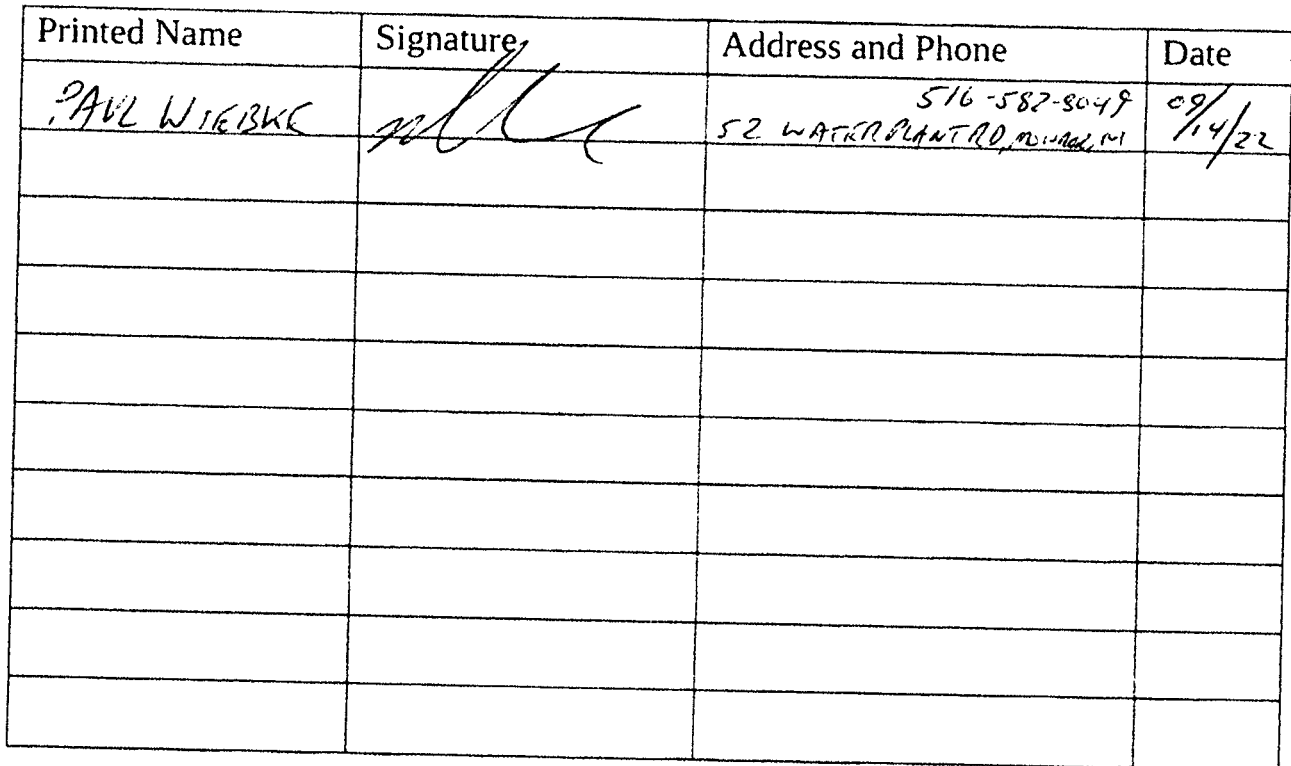 Printed Name Signature Address and Phone Date
PAUL WIEBKE 516-582-8049 09/14/22
52 WATER PLANT RD,